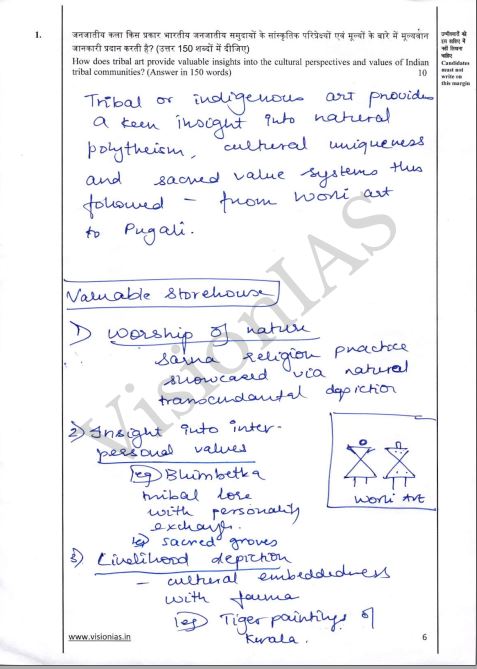 1.
जनजातीय कला किस प्रकार भारतीय जनजातीय समुदायों के सांस्कृतिक परिप्रेक्ष्यों एवं मूल्यों के बारे में मूल्यवान
जानकारी प्रदान करती है? (उत्तर 150 शब्दों में दीजिए)
How does tribal art provide valuable insights into the cultural perspectives and values of Indian
tribal communities? (Answer in 150 words)
10
उम्मीदवारों को
इस हाशिए में
नहीं लिखना
चाहिए
Candidates
must not
write on
this margin
Tribal or indigenous art provides
a keen insight into natural
polytheism, cultural uniqueness
and sacred value systems thus
followed – from Worli art
to Pugali.
Valuable Storehouse
1) Worship of nature
Sarna religion practice
showcased via natural
transcendantal depiction
2) Insight into inter-
personal values
eg) Bhimbetka
tribal lose
with personality
exchange.
eg) sacred groves
Worli Art
3) Livelihood depiction
– cultural embeddedness
with fauna
eg) Tiger paintings of
Kerala.
www.visionias.in
6
VisionIAS